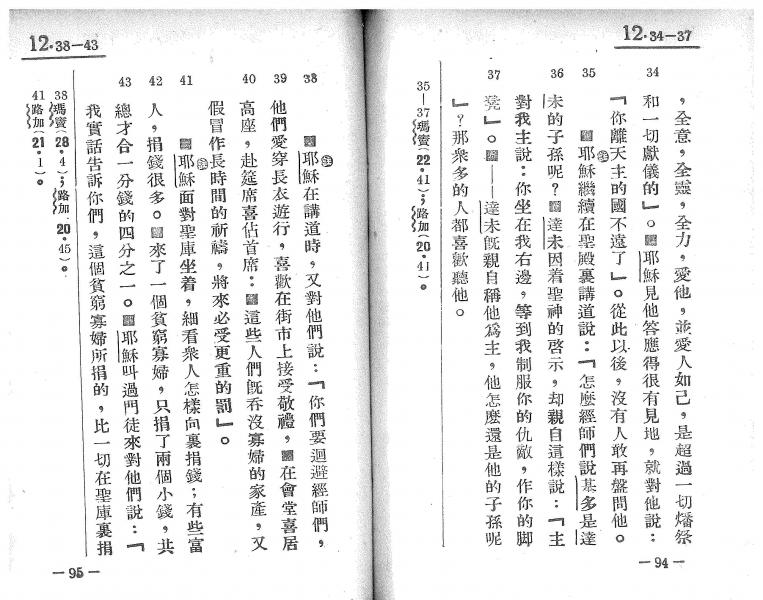 12·34—37
，全意，全靈，全力，愛他，並愛人如己，是超過一切燔祭
34 和一切獻儀的」。耶穌見他答應得很有見地，就對他說：
「你離天主的國不遠了」。從此以後，沒有人敢再盤問他。
35 耶穌繼續在聖殿裏講道說：「怎麼經師們說基多是達
36 未的子孫呢？達未因着聖神的啓示，却親自這樣說：「主
對我主說：你坐在我右邊，等到我制服你的仇敵，作你的脚
37 凳」。——達未旣親自稱他為主，他怎麼還是他的子孫呢
」？那衆多的人都喜歡聽他。
35—37瑪竇(22·41)；路加(20·41)。
—94—
12·38—43
38 耶穌在講道時，又對他們說：「你們要迴避經師們，
39 他們愛穿長衣遊行，喜歡在街市上接受敬禮，在會堂喜居
40 高座，赴筵席喜佔首席：這些人們旣吞沒寡婦的家產，又
假冒作長時間的祈禱，將來必受更重的罰」。
41 耶穌面對聖庫坐着，細看衆人怎樣向裏捐錢；有些富
42 人，捐錢很多。來了一個貧窮寡婦，只捐了兩個小錢，共
43 總才合一分錢的四分之一。耶穌叫過門徒來對他們說：「
我實話告訴你們，這個貧窮寡婦所捐的，比一切在聖庫裏捐
38瑪竇(28·4)；路加(20·45)。
41路加(21·1)。
—95—